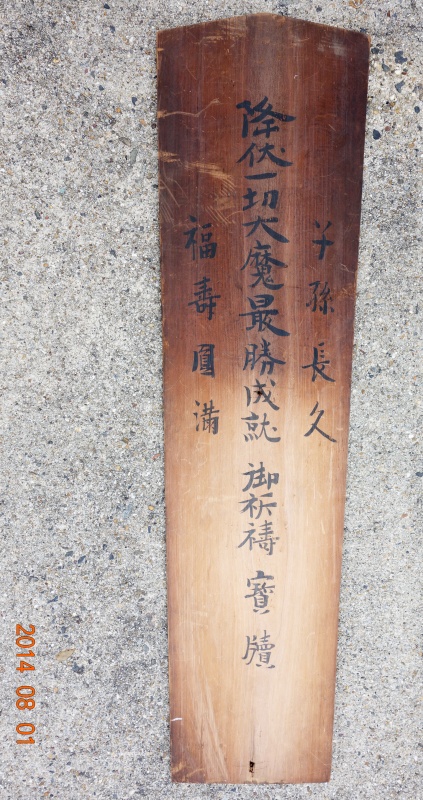 子孫長久
降伏一切大魔最勝成就 御祈禱 寶牘
福壽圓滿
2014 08 01